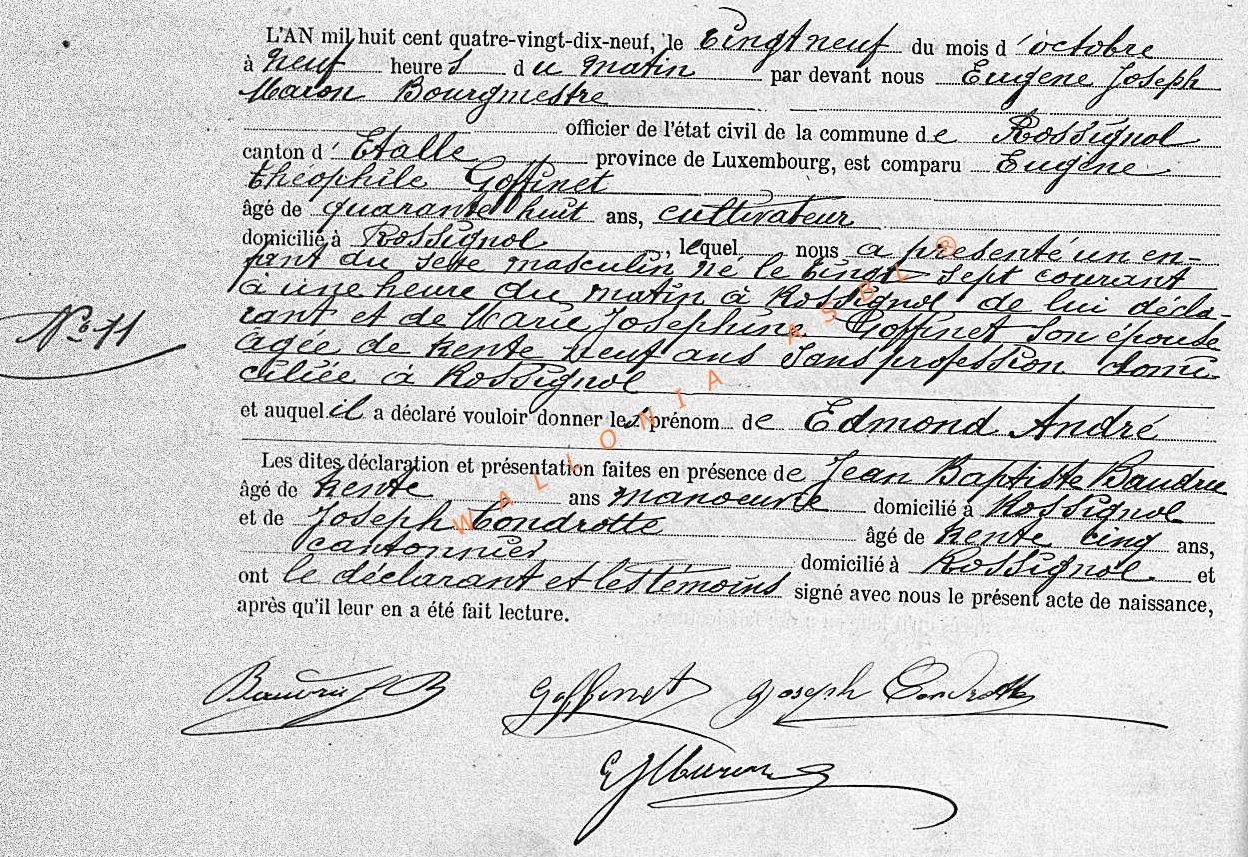 L'AN mil huit cent quatre-vingt-dix-neuf, le Vingt neuf du mois d'octobre
à neuf heures du matin par devant nous Eugène Joseph
Maron Bourgmestre
officier de l'état civil de la commune de Rossignol
canton d'Etalle province de Luxembourg, est comparu Eugène
théophile Goffinet
âgé de quarante huit ans, cultivateur
domicilié à Rossignol, lequel nous a presenté un en-
fant du sexe masculin né le Vingt sept courant
à une heure du matin à Rossignol de lui décla-
rant et de Marie Josephine Goffinet son épouse
âgée de trente neuf ans sans profession domi
ciliée à Rossignol
N° 11
et auquel il a déclaré vouloir donner les prénom de Edmond André
Les dites déclaration et présentation faites en présence de Jean Baptiste Baudru
âgé de trente ans manoeuvre domicilié à Rossignol
et de Joseph Condrotte âgé de trente cinq ans,
cantonnier domicilié à Rossignol et
ont le déclarant et les témoins signé avec nous le présent acte de naissance,
après qu'il leur en a été fait lecture.
Baudru J B Goffinet Joseph Condrotte
E J Maron
WALLONIA ASBL ®